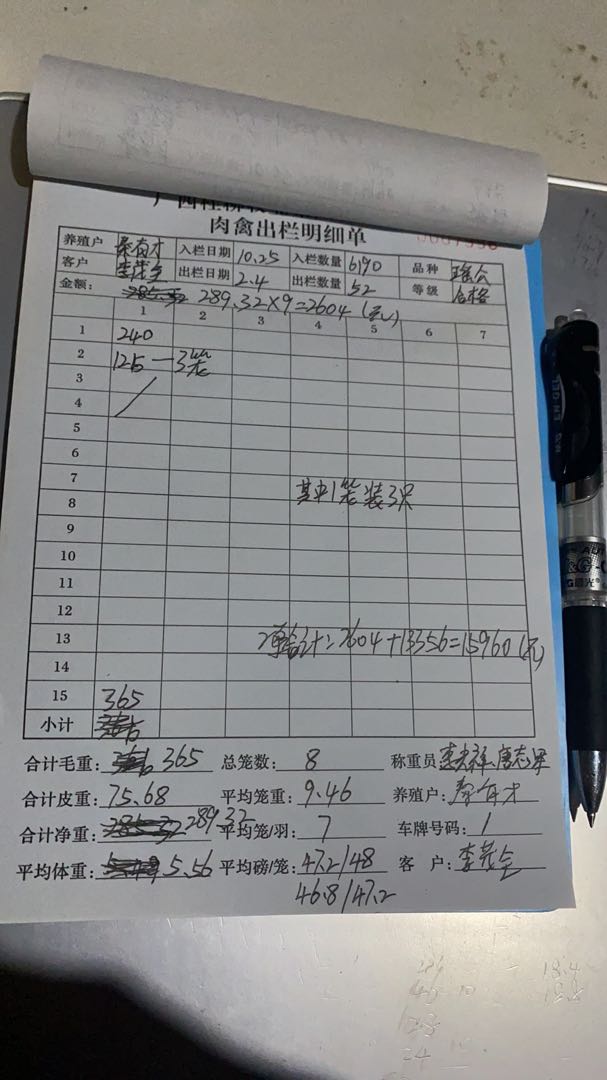 肉禽出栏明细单
养殖户 秦有才 入栏日期 10.25 入栏数量 6190 品种
客户 李茂全 出栏日期 2.4 出栏数量 52 等级 合格
金额： 289.32×9=2604（元）
1 2 3 4 5 6 7
1 240
2 125—3笼
3
4
5
6
7 其中1笼装3只
8
9
10
11
12
13 2单合计=2604+13356=15960（元）
14
15 365
小计
合计毛重：365 总笼数：8 称重员
合计皮重：75.68 平均笼重：9.46 养殖户：秦有才
合计净重：289.32 平均笼/羽：7 车牌号码：1
平均体重：5.56 平均磅/笼：47.2/48 客 户：李茂全
46.8/47.2